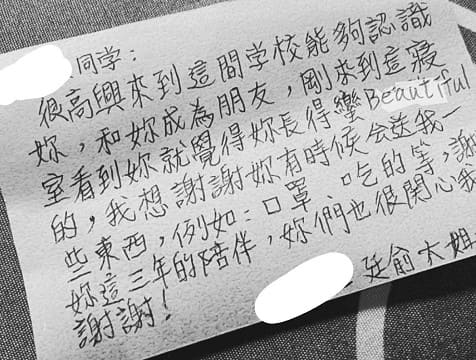 同学：
很高興來到這間学校能夠認識
妳，和妳成為朋友，剛來到這寢
室看到妳就覺得妳長得蠻Beautiful
的，我想謝謝妳有時候会送我一
些東西，例如：口罩、吃的等，謝
妳這三年的陪伴，妳們也很開心我
謝謝！
廷俞大姐